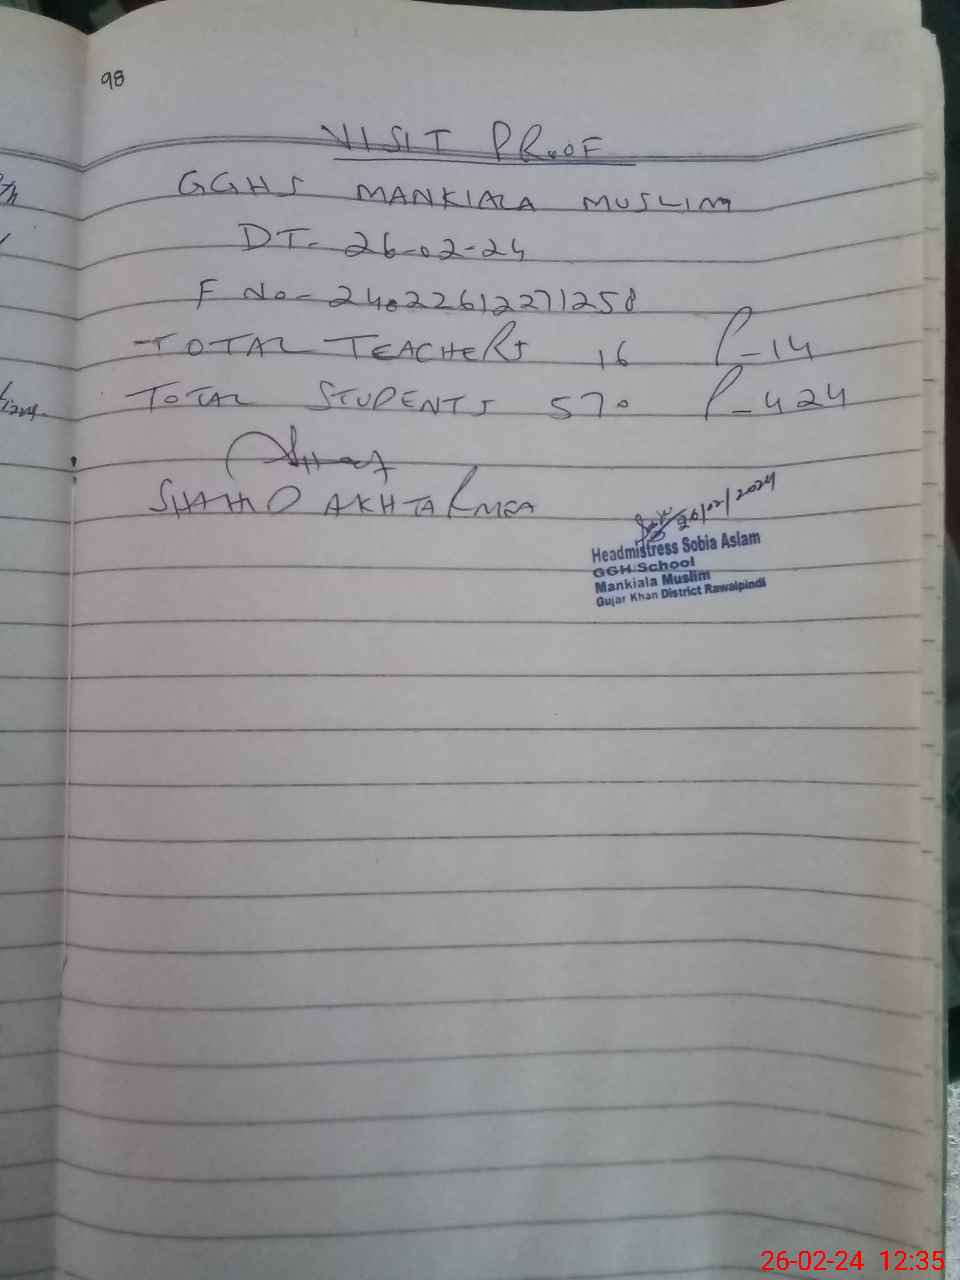 98
VISIT PROOF
GGHS MANKIALA MUSLIM
DT- 26-02-24
F No- 24022612271258
TOTAL TEACHERS 16 P-14
TOTAL STUDENTS 570 P-424
SHAHID AKHTAR MEA
26/02/2024
Headmistress Sobia Aslam
GGH School
Mankiala Muslim
Gujar Khan District Rawalpindi
26-02-24 12:35